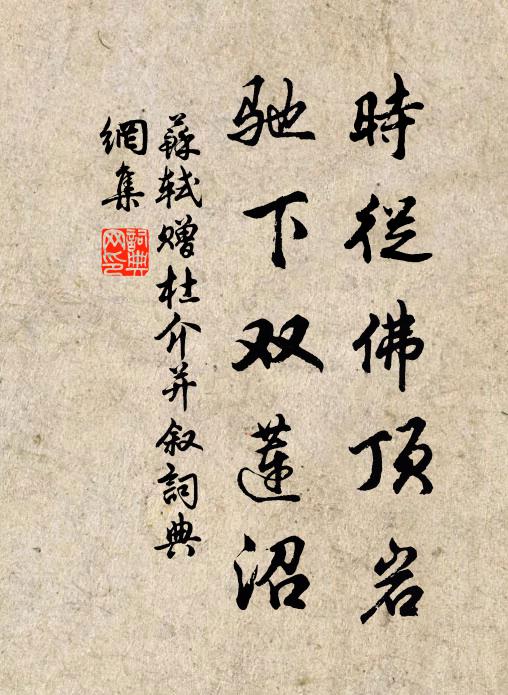 時從佛頂岩
馳下双蓮沼
蘇軾赠杜介并叙詞典
網集
詞典
网印